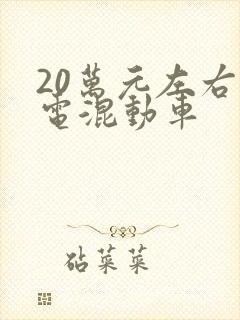 20萬元左右
電混動車
砧菜菜